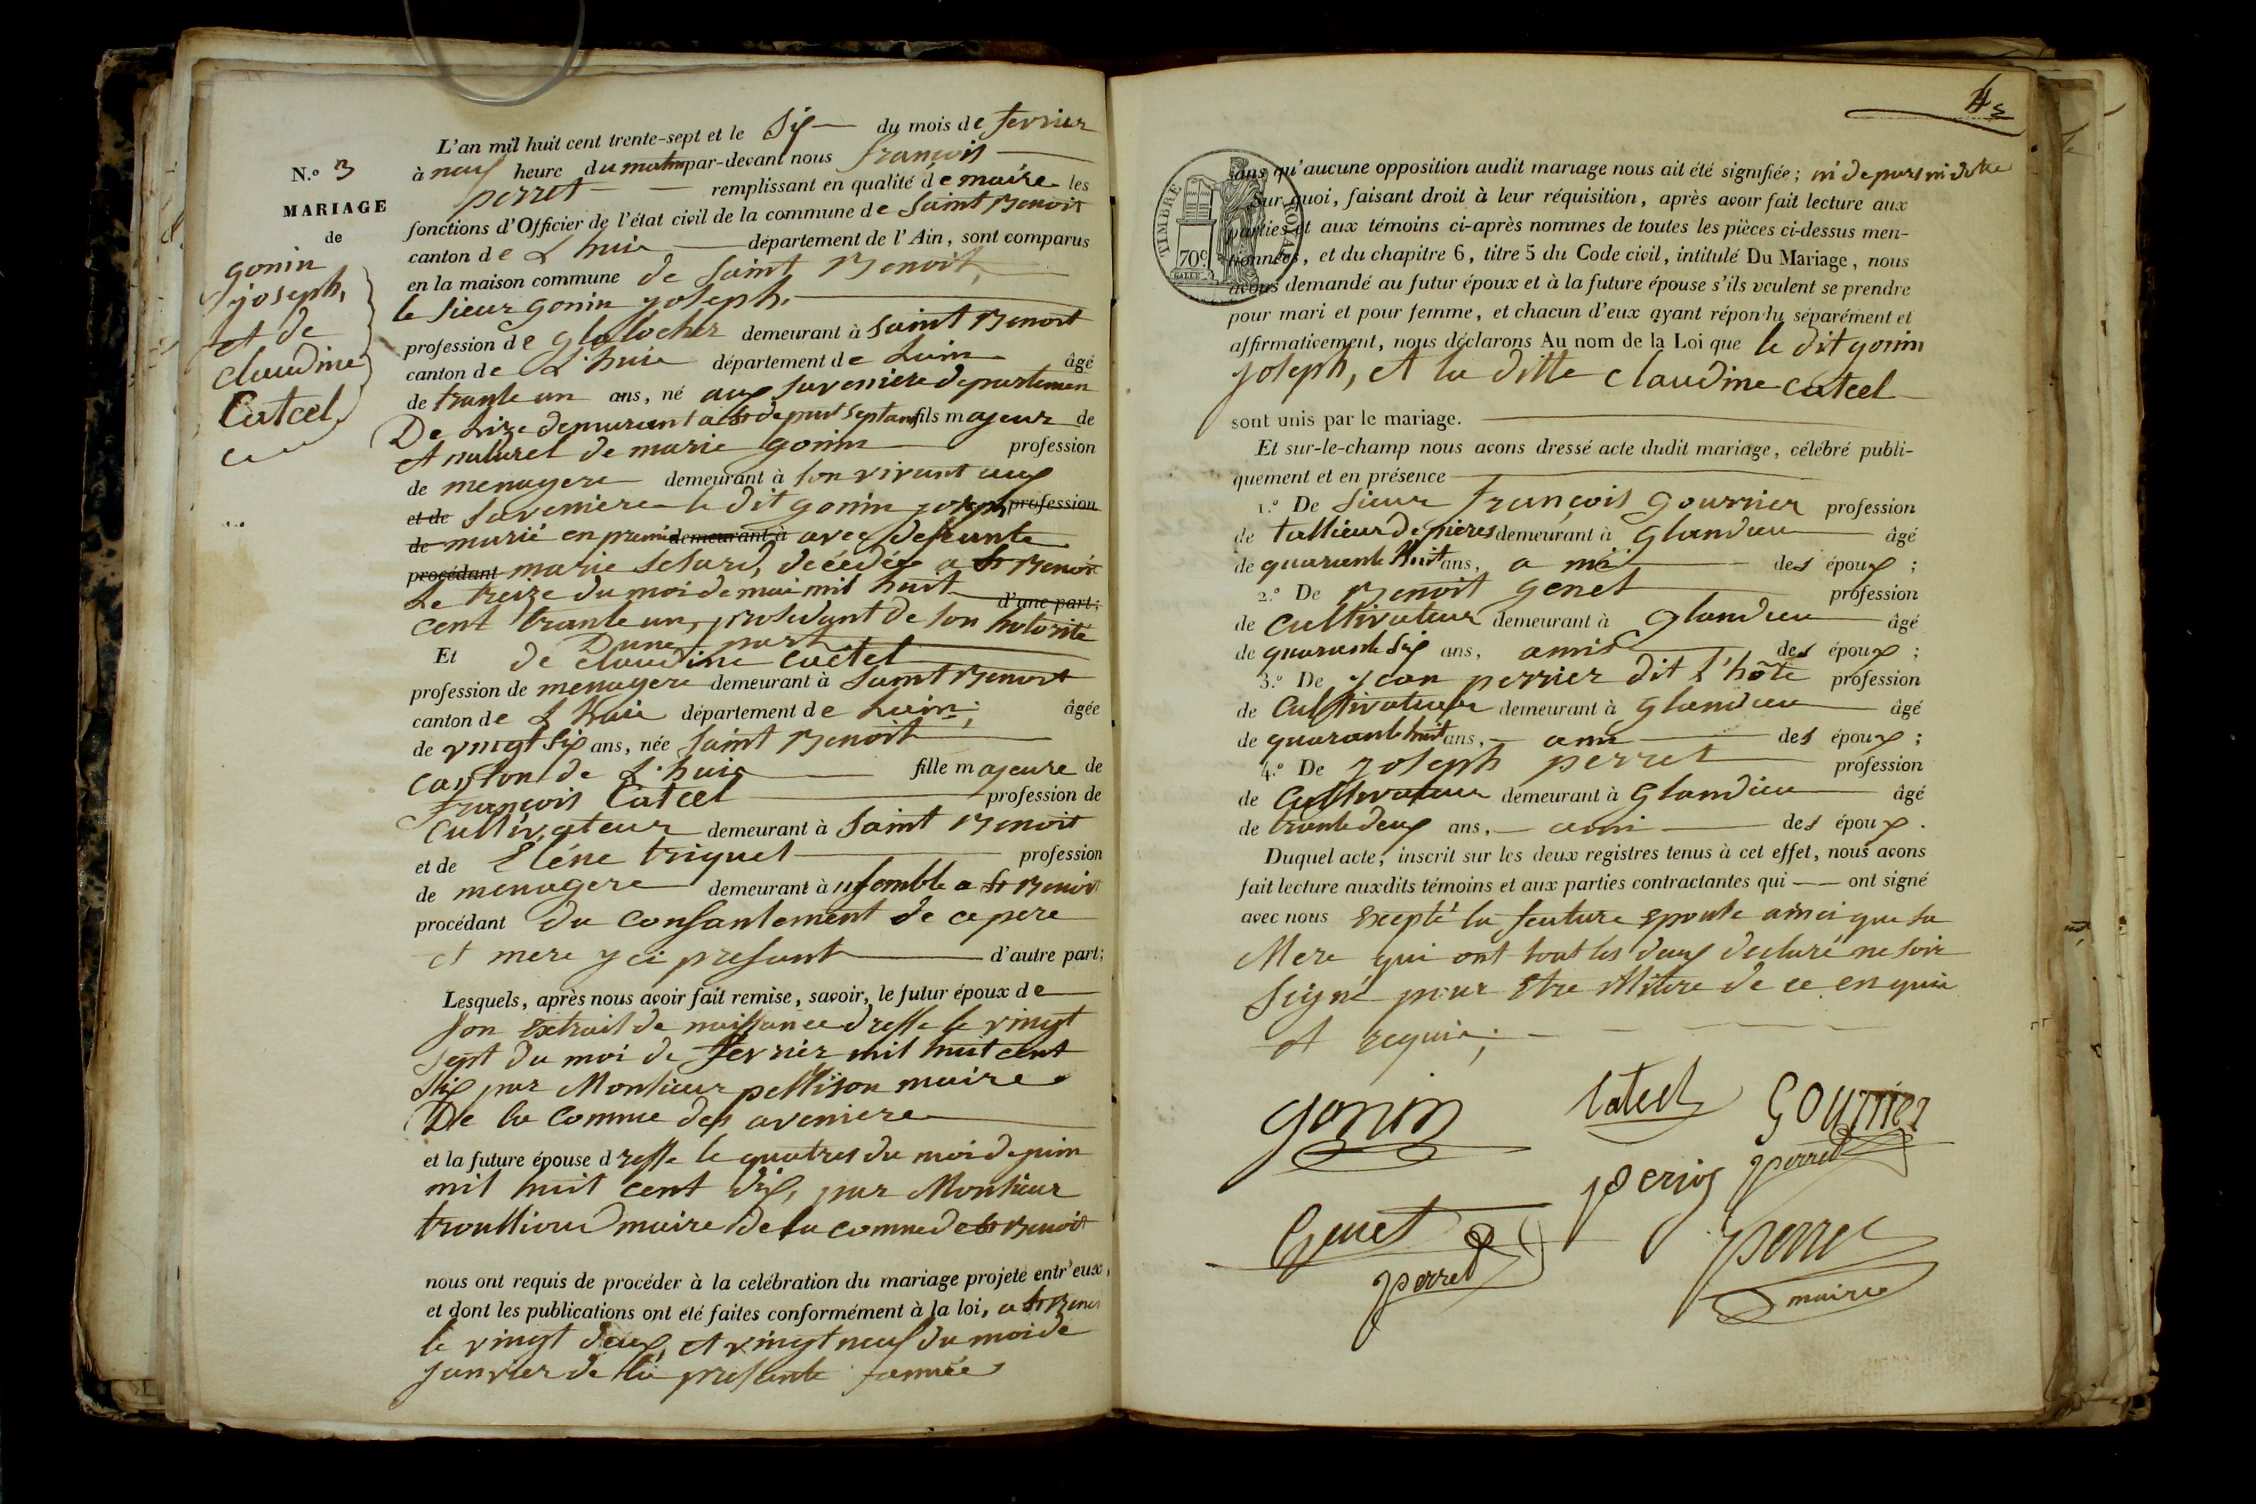 N.º 3
MARIAGE
de
gonin
joseph,
et de
claudine
Catcel
L'an mil huit cent trente-sept et le Six du mois de fevrier
à neuf heure du matin par-devant nous françois
perret remplissant en qualité de maire les
fonctions d'Officier de l'état civil de la commune de Saint Benoit
canton de L'huis département de l'Ain, sont comparus
en la maison commune de Saint Benoit,
le Sieur gonin joseph,
profession de demeurant à Saint Benoit
canton de L'huis département de Lain âgé
de trante un ans, né aux Savenière departemen
De Lizere demeurant a St depuit sept ans fils majeur de
et naturel de marie gonin profession
de menagere demeurant à son vivant aux
et de Savenieres le dit gonin joseph profession
de marié en premie demeurant à avec defunte
procédant marie décédée a St Benoit
Le treize du moi de mai mil huit d'une part;
cent trante un, prosedant de son hotorité
Dune part
Et de claudine Catcel
profession de menagere demeurant à Saint Benoit
canton de L'huis département de Lain; âgée
de vingt Six ans, née Saint Benoit
canton de L'huis fille majeure de
françois Catcel profession de
Cultivateur demeurant à Saint Benoit
et de Eléne triquet profession
de menagere demeurant à ensemble a St Benoit
procédant du consantement de ce pere
et mere y ci presant d'autre part;
Lesquels, après nous avoir fait remise, savoir, le futur époux de
Son extrait de naissance dresse le vingt
sept du moi de fevrier mil huit cent
Six par Monsieur pellison maire
De la commue des avenieres
et la future épouse dresse le quatres du moi de juin
mil huit cent dix, par Monsieur
maire de la commue de St Benoit
nous ont requis de procéder à la celébration du mariage projeté entr'eux,
et dont les publications ont été faites conformément à la loi, a St Benoit
le vingt deux, et vingt neuf du moi de
janvier de la presente année
4
TIMBRE ROYAL
70c
sans qu'aucune opposition audit mariage nous ait été signifiée; ni depuis ni
Sur quoi, faisant droit à leur réquisition, après avoir fait lecture aux
parties et aux témoins ci-après nommés de toutes les pièces ci-dessus men-
tionnées, et du chapitre 6, titre 5 du Code civil, intitulé Du Mariage, nous
avons demandé au futur époux et à la future épouse s'ils veulent se prendre
pour mari et pour femme, et chacun d'eux ayant répondu séparément et
affirmativement, nous déclarons Au nom de la Loi que le dit gonin
joseph, et la ditte claudine catcel
sont unis par le mariage.
Et sur-le-champ nous avons dressé acte dudit mariage, célébré publi-
quement et en présence
1.º De Sieur françois gourrier profession
de tallieur de pieres demeurant à glandieu âgé
de quarante huit ans, a mi des époux;
2.º De Benoit genet profession
de cultivateur demeurant à glandieu âgé
de quarante Six ans, amis des époux;
3.º De jean perrier dit l'hôte profession
de Cultivateur demeurant à glandieu âgé
de quarante huit ans, ami des époux;
4.º De joseph perret profession
de Cultivateur demeurant à glandieu âgé
de trante deux ans, ami des époux.
Duquel acte, inscrit sur les deux registres tenus à cet effet, nous avons
fait lecture auxdits témoins et aux parties contractantes qui ont signé
avec nous excepté la feuture epouse ainci que sa
Mere qui ont tout les deux declaré ne
Signé pour etre de ce enquis
et requis;
gonin Catcel gourrier
perier perret
Genet perret
perret maire